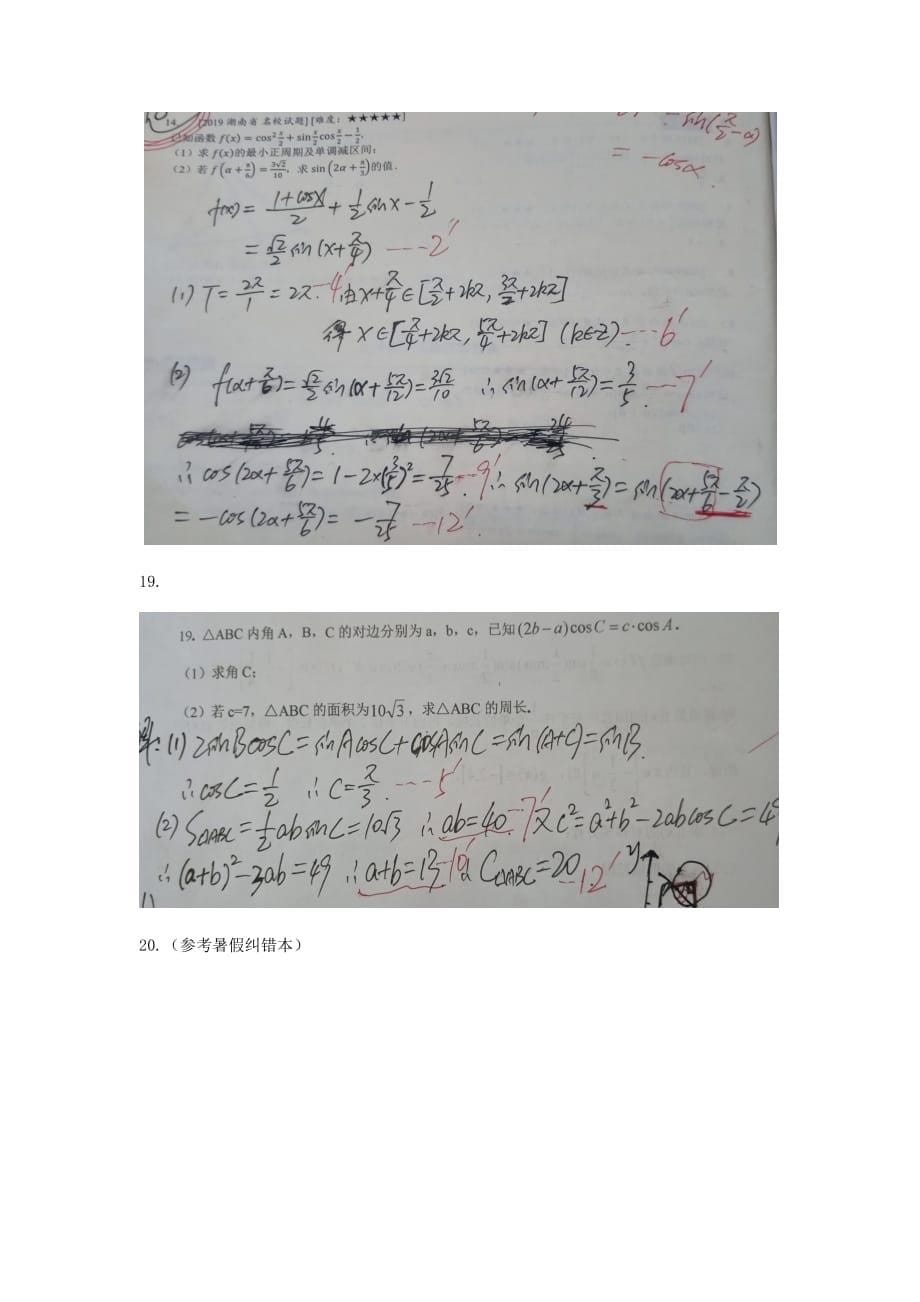 14. [2019 湖南省 名校试题] [难度：★★★★★]
已知函数 f(x) = cos² x/2 + sin x/2 cos x/2 − 1/2.
（1）求 f(x)的最小正周期及单调减区间；
（2）若 f(α + π/6) = 3√2/10，求 sin(2α + π/3)的值.
sin(π/2 − α)
= −cosα
f(x) = (1+cosx)/2 + 1/2 sinx − 1/2
= √2/2 sin(x+π/4) ---2′
(1) T = 2π/1 = 2π. −4′ 由x+π/4 ∈ [π/2+2kπ, 3π/2+2kπ]
得 x∈[π/4+2kπ, 5π/4+2kπ] (k∈Z) ---6′
(2) f(α+π/6) = √2/2 sin(α+5π/12) = 3√2/10 ∴ sin(α+5π/12) = 3/5. ---7′
∴ cos(2α+5π/6) = 1−2×(3/5)² = 7/25. --9′ ∴ sin(2α+π/3) = sin(2α+5π/6−π/2)
= −cos(2α+5π/6) = −7/25 --12′
19.
19. △ABC 内角 A，B，C 的对边分别为 a，b，c，已知(2b−a)cosC=c·cosA.
（1）求角 C；
（2）若 c=7，△ABC 的面积为10√3，求△ABC 的周长.
解: (1) 2sinBcosC = sinAcosC + cosAsinC = sin(A+C) = sinB
∴ cosC = 1/2 ∴ C = π/3. ---5′
(2) S△ABC = 1/2 ab sinC = 10√3 ∴ ab=40 −7′ 又 c² = a²+b²−2abcosC = 49
∴ (a+b)²−3ab = 49 ∴ a+b = 13 −10′ C△ABC = 20. --12′ y
20.（参考暑假纠错本）